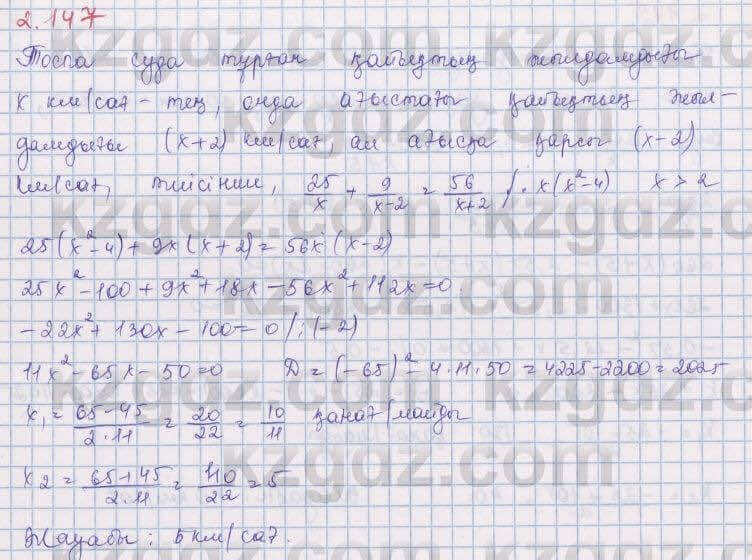 2.147
Тоспа суда тұрған қайықтың жылдамдығы
x км/сағ - тең, онда ағыстағы қайықтың жыл-
дамдығы (x+2) км/сағ, ал ағысқа қарсы (x-2)
км/сағ, тиісінше, 25/x + 9/(x-2) = 56/(x+2) /· x(x²-4) x > 2
25(x²-4)+9x(x+2)=56x(x-2)
25x²-100+9x²+18x-56x²+112x=0
-22x²+130x-100=0 /:(-2)
11x²-65x-50=0 D=(-65)²-4·11·50=4225-2200=2025
x₁=(65-45)/(2·11)=20/22=10/11 қанағ/майды
x2=(65+45)/(2·11)=110/22=5
Жауабы: 5 км/сағ.
kzgdz.com